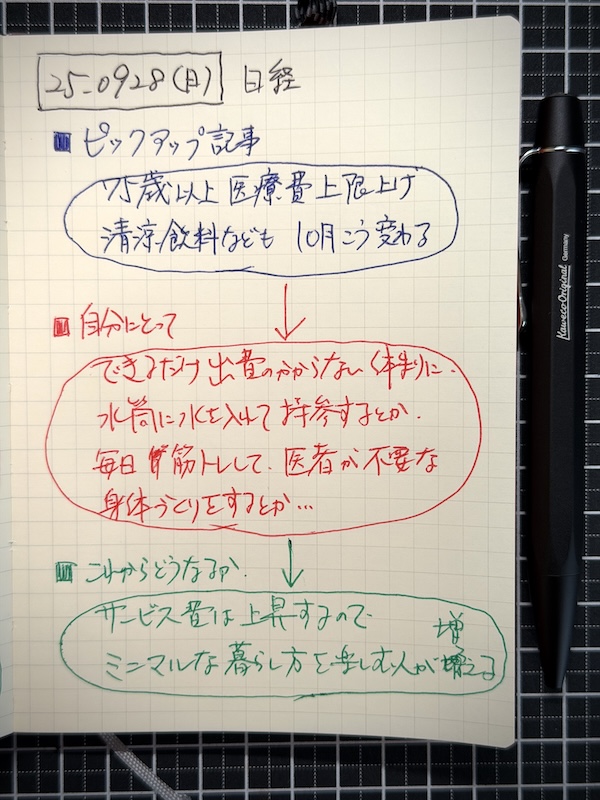 25-0928(日) 日経
ピックアップ記事
75歳以上医療費上限上げ
清涼飲料なども 10月こう変わる
自分にとって
できるだけ出費のかからない体まりに.
水筒に水を入れて持参するとか.
毎日 筋トレして、医者が不要な
身体づくりをするとか…
これからどうなるか.
サービス費は上昇するので
増
ミニマルな暮らし方を楽しむ人が増える
Kaweco Original Germany